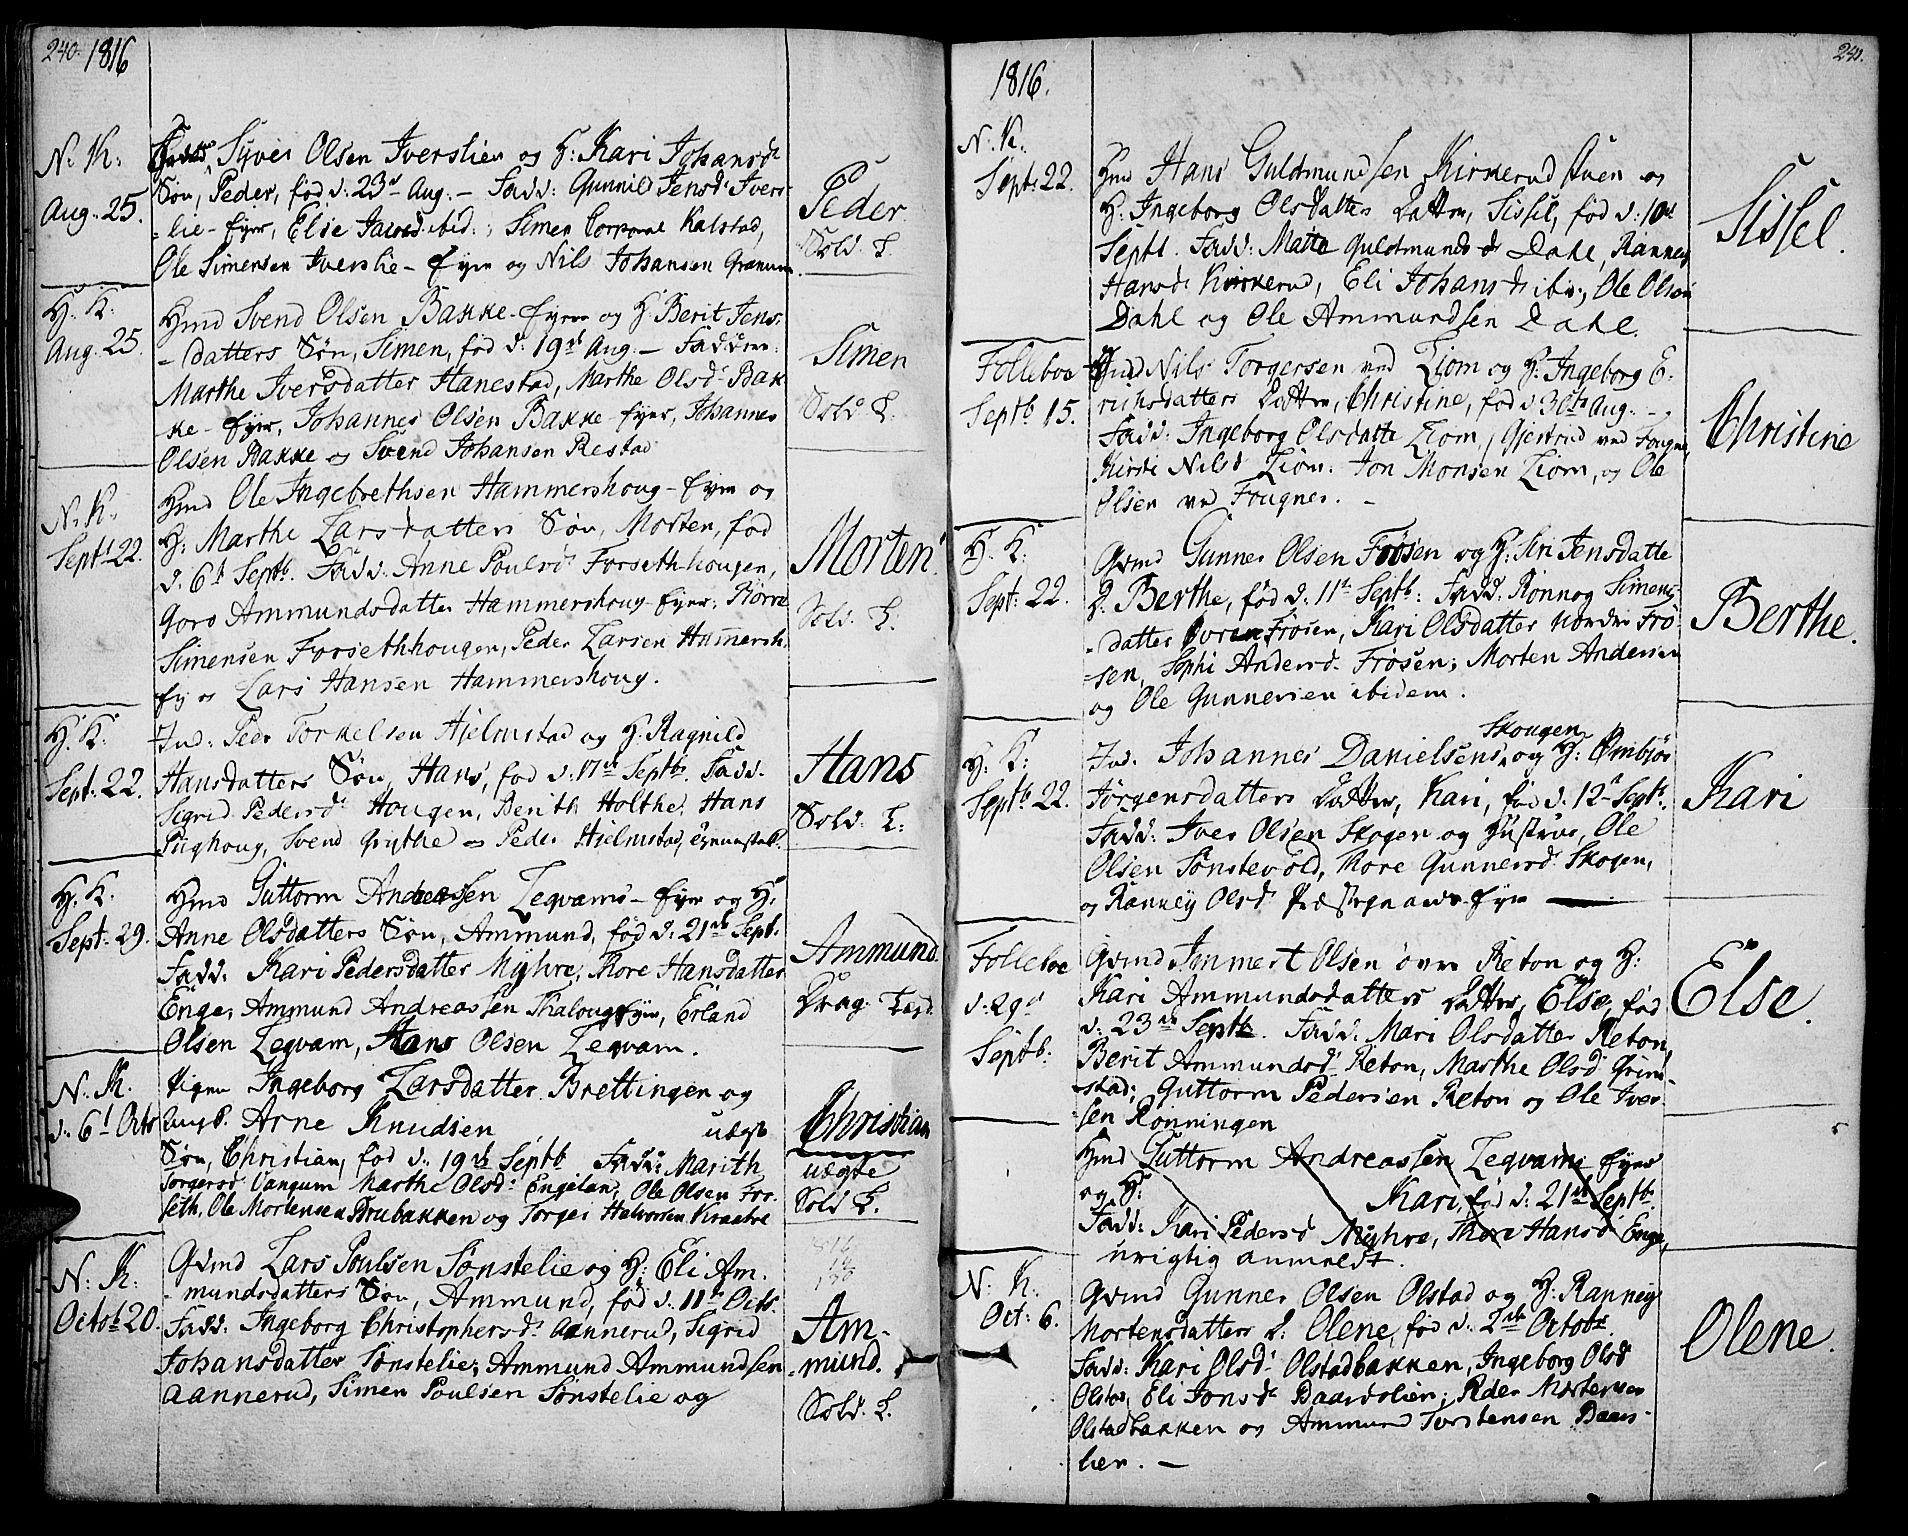 240. 1816
N. K:
Aug: 25.
Syver Olsen Iverslien og H: Kari Johansd:
Søn, Peder, fød d: 23d Aug. – Fadd: Gunnild Jensd: Ivers-
-lie-Eyer, Else ibid:, Simen Corporal Kalstad,
Ole Simensen Iverslie-Eyer og Nils Johansen Granum.
Peder.
Sold. L.
H. K:
Aug. 25.
Hmd Svend Olsen Bakke-Eyer og H: Berit Jens-
-datters Søn, Simen, fød d: 19d Aug – Faddere
Marthe Iversdatter Hanestad, Marthe Olsd: Bak-
ke-Eyer, Johannes Olsen Bakke-Eyer, Johannes
Olsen Bakke og Svend Johansen Restad
Simen
Sold L.
N. K.
Sept: 22.
Hmd Ole Ingebrethsen Hammershoug-Eyer og
H: Marthe Larsdatters Søn, Morten, fød
d. 6d Septb. Fadd. Anne Poulsd: Forseth-hougen,
Goro Ammundsdatter Hammershoug-Eyer,
Simensen Forsethhougen, Peder Larsen Hammersh.
Ey og Lars Hansen Hammershoug.
Morten.
Sold. L.
H. K:
Sept: 22.
Ind: Peder Torkelsen Hjelmstad og H: Ragnild
Hansdatters Søn, Hans, fød d: 17d Septb. Fadd.
Sigrid Pedersd: Hougen, Berith Holthe, Hans
Pighoug, Svend Grythe og Peder Hjelmstad,
Hans
Sold: L:
H. K:
Sept: 29.
Hmd Guttorm Andreassen Legvams-Eyer og H:
Anne Olsdatters Søn, Ammund, fød d: 21de Sept.
Fadd: Kari Pedersdatter Myhre, Thore Hansdatter
Enge, Ammund Andreassen Skalougs Eyer, Erland
Olsen Legvam, Hans Olsen Legvam.
Ammund.
Drag:
N. K.
d. 6d Octb
Pigen Ingeborg Larsdatter Brettingen og
Ungk. Arne Knudsen uægte
Søn, Christian, fød d: 19de Septb Fadd: Marith
Torgersd Vangum Marthe Olsd: Engelan, Ole Olsen For-
seth, Ole Mortensen Brubakken og Torger Halvorsen Kraabøe
Christian
uægte
Sold L.
N: K.
Octob 20.
Gvmd Lars Poulsen Sønstelie og H: Eli Am-
-mundsdatters Søn, Ammund, fød d: 11te Octb.
Fadd: Ingeborg Christophersd: Aannerud, Sigrid
Johansdatter Sønstelie; Ammund Ammundsen
Aannerud, Simen Poulsen Sønstelie og
Am-
-mund.
Sold. L.
241.
1816.
N. K.
Sept: 22.
Hmd Hans Guldmundsen Kirkerud og
H: Ingeborg Olsdatters Datter, Sissel, fød d: 10de
Septb. Fadd: Matte Guldmundsd: Dahl, Ranney
Hansd: Kirkerud, Eli Johansd: ibid:, Ole Olsen
Dahl og Ole Ammundsen Dahl.
Sissel.
Folleboe
Septb 15.
Hmd Nils Torgersen ved Liom og H: Ingeborg E-
richsdatters Datter, Christine, fød d 30te Aug. –
Fadd: Ingeborg Olsdatter Liom, Gjertrud ved Fougner,
Kirsti Nilsd Liom. Jon Monsen Liom, og Ole
Olsen ved Fougner. –
Christine
H. K:
Sept: 22.
Gvmd Gunner Olsen Frøsen og H: Siri Jensdatte
D. Berthe, fød d. 11te Septb: Fadd: Ronnog Simens-
-datter Frøsen, Kari Olsdatter Nordre Frø-
-sen, Sophi Andersd: Frøsen; Morten Andersen
og Ole Gunnersen ibidem.
Berthe.
H. K:
Septb 22.
Ind. Johannes Danielsens Skougen og H: Ømbjør
Jørgensdatters Datter, Kari, fød d. 12te Septb.
Fadd: Iver Olsen Skogen og Hustrue, Ole
Olsen Sønstevold, Thore Gunnersd: Skogen,
og Ranney Olsd: Præstegaards-Eyer
Kari
Follebøe
d: 29d
Septb:
Gvmd Immert Olsen øvre Reton og H:
Kari Ammundsdatters Datter, Else, fød
d: 23de Septb. Fadd: Mari Olsdatter Reton
Berit Ammundsd: Reton, Marthe Olsd: Grim-
-stad; Guttorm Pedersen Reton og Ole Iver-
sen Rønningen
Else.
Hmd Guttorm Andreassen Legvams Eyer
og H: Kari, fød d: 21de Septb.
Fadd: Kari Pedersd Myhre, Thore Hansd Enge,
urigtig anmeldt.
N: K.
Oct: 6.
Gvmd Gunner Olsen Olstad og H: Ranneig
Mortensdatters D: Olene, fød d: 2de Octobr.
Fadd: Kari Olsd: Olstadbakken, Ingeborg Olsd
Olstad, Eli Jonsd: Baardslien; Peder Mortensen
Olstadbakken og Ammund Torstensen Baars-
lien. –
Olene.